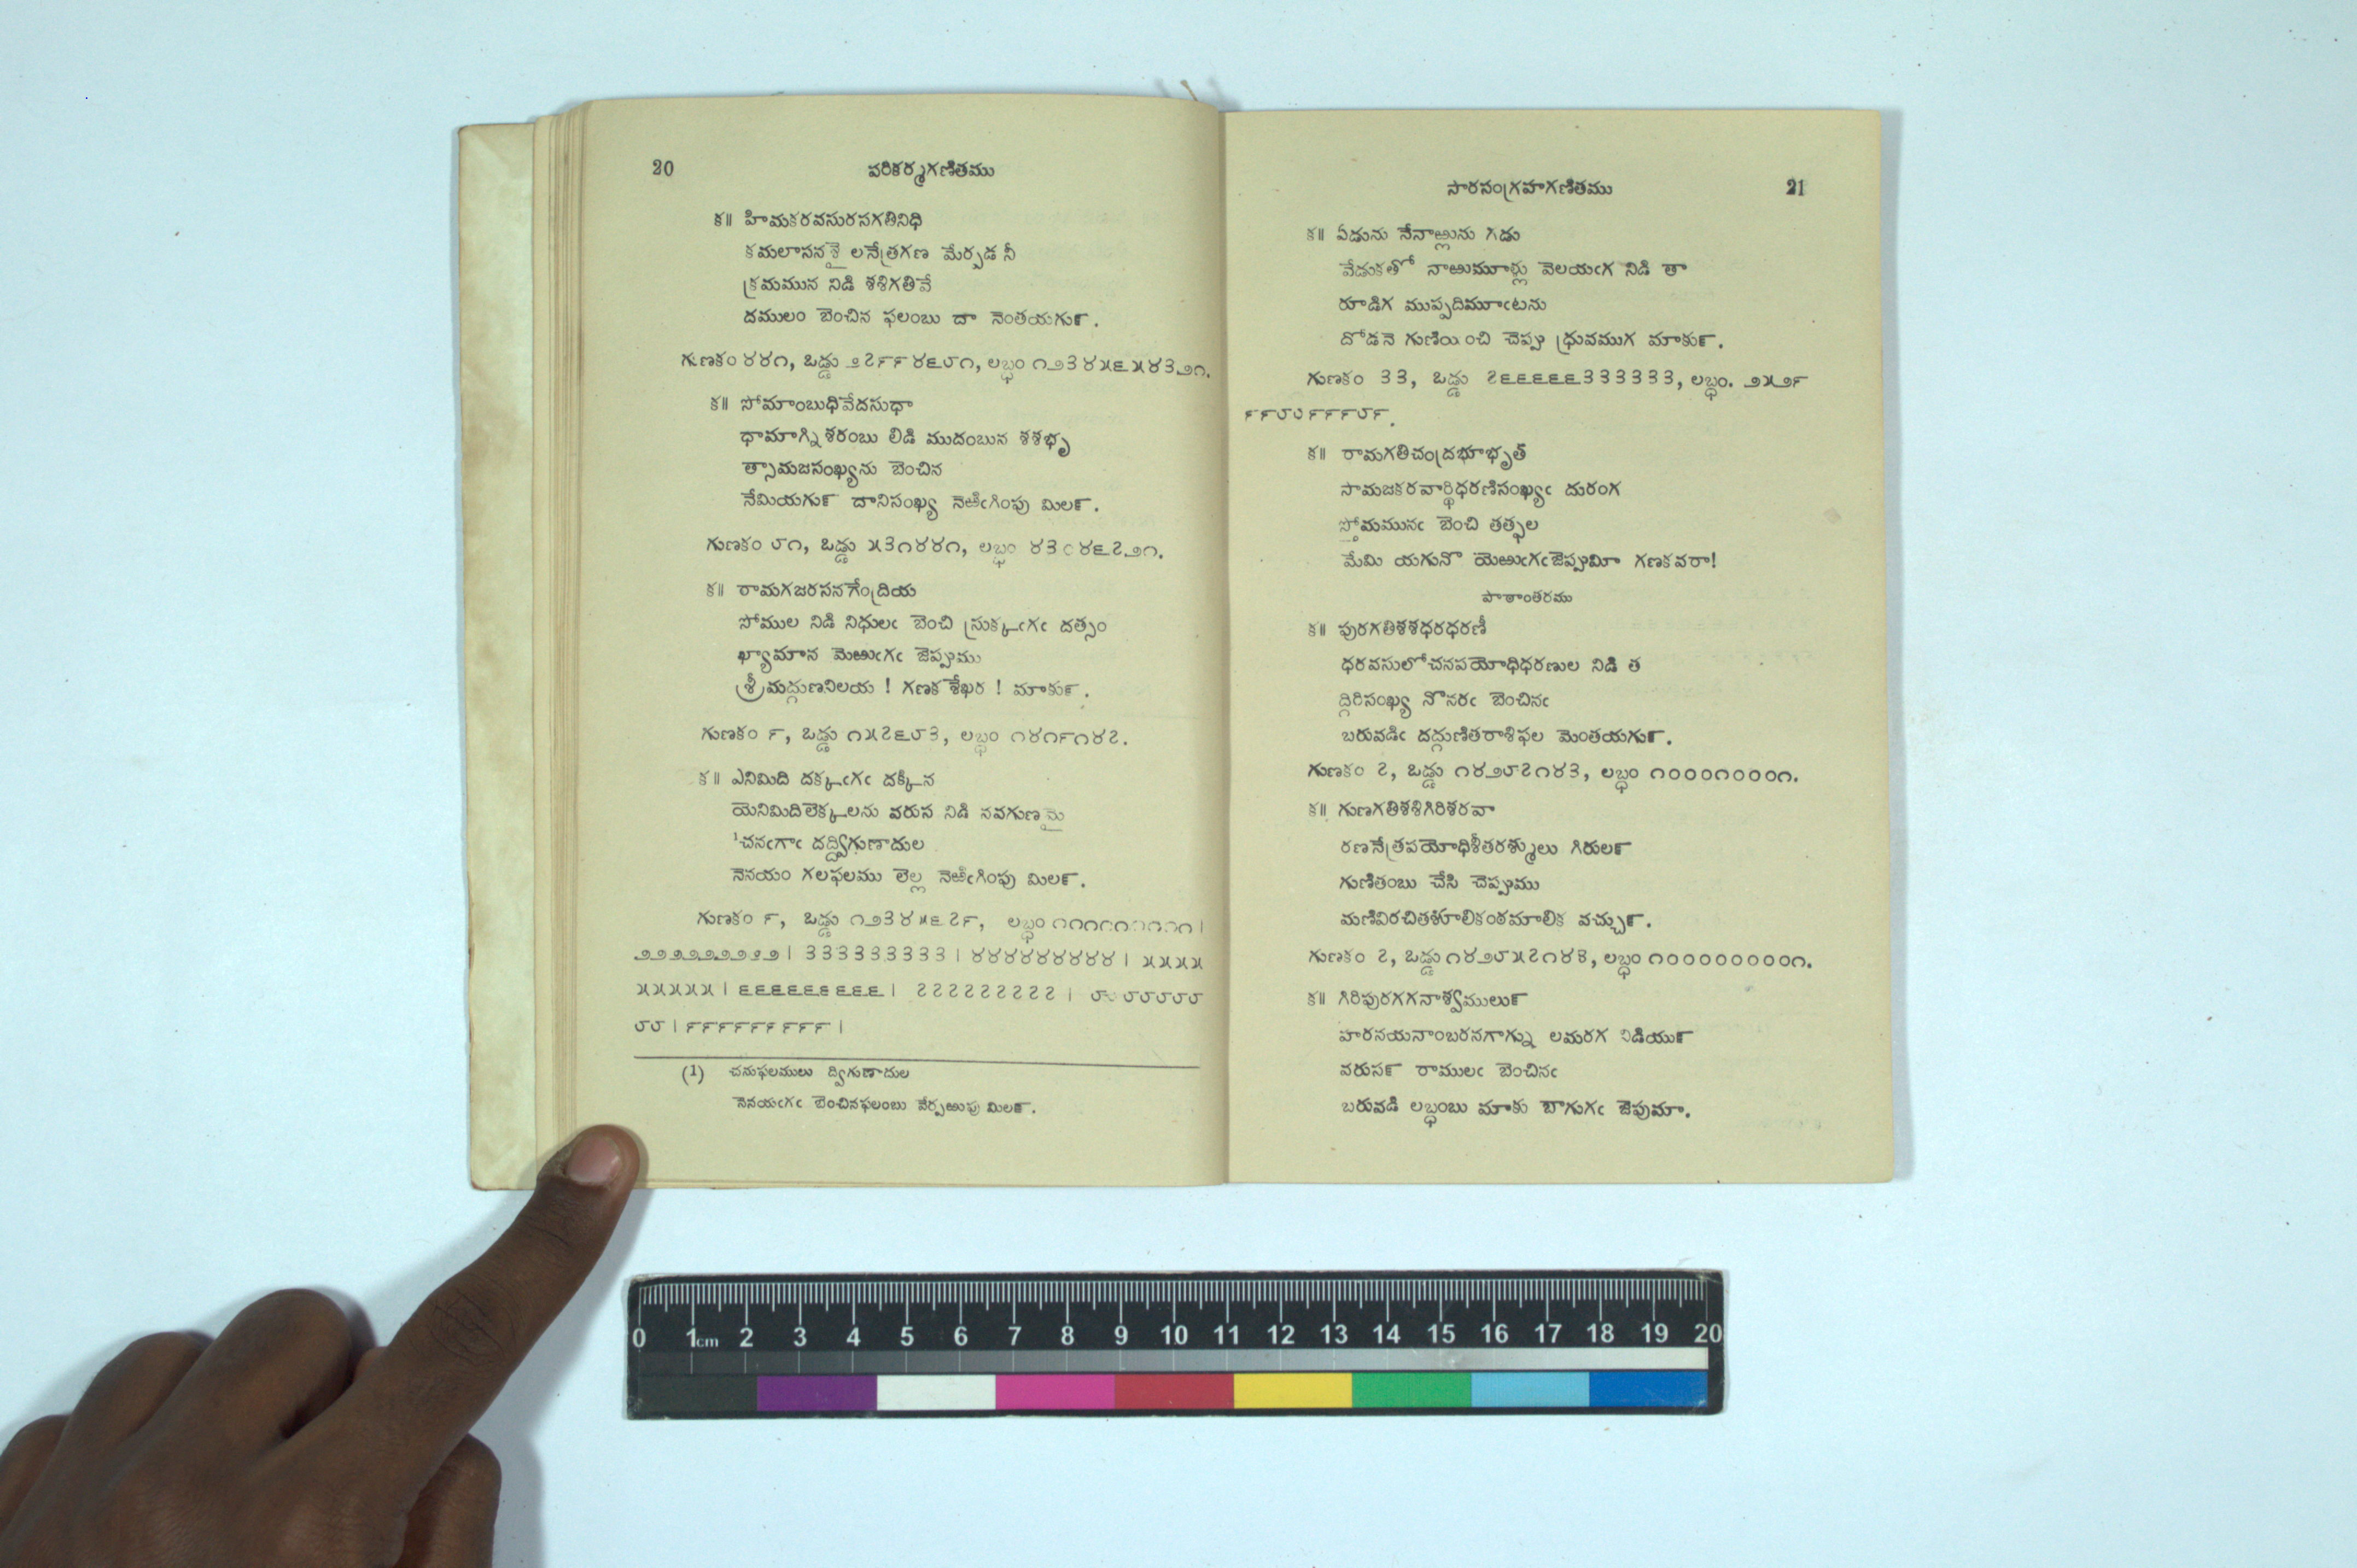 20
పరికర్మగణితము
క॥ హిమకరవసురసగతినిధి
కమలాసనశై లనేత్రగణ మేర్పడ నీ
క్రమమున నిడి శశిగతివే
దములం బెంచిన ఫలంబు దా నెంతయగున్.
గుణకం ౪౪౧, ఒడ్డు ౨౭౯౯౪౬౮౧, లబ్ధం ౧౨౩౪౫౬౫౪౩౨౧.
క॥ సోమాంబుధివేదసుధా
ధామాగ్ని శరంబు లిడి ముదంబున శశభృ
త్సామజసంఖ్యను బెంచిన
నేమియగున్ దానిసంఖ్య నెఱిఁగింపు మిలన్.
గుణకం ౮౧, ఒడ్డు ౫౩౧౪౪౧, లబ్ధం ౪౩౦౪౬౭౨౧.
క॥ రామగజరసనగేంద్రియ
సోముల నిడి నిధులఁ బెంచి స్రుక్కఁగఁ దత్సం
ఖ్యామాన మెఱుఁగఁ జెప్పుము
శ్రీమద్గుణనిలయ ! గణక శేఖర ! మాకున్.
గుణకం ౯, ఒడ్డు ౧౫౭౬౮౩, లబ్ధం ౧౪౧౯౧౪౭.
క॥ ఎనిమిది దక్కఁగఁ దక్కిన
యెనిమిదిలెక్కలను వరుస నిడి నవగుణమై
¹చనఁగాఁ దద్ద్విగుణాదుల
నెనయం గలఫలము లెల్ల నెఱిఁగింపు మిలన్.
గుణకం ౯, ఒడ్డు ౧౨౩౪౫౬౭౯, లబ్ధం ౧౧౧౧౧౧౧౧౧ |
౨౨౨౨౨౨౨౨౨ | ౩౩౩౩౩౩౩౩౩ | ౪౪౪౪౪౪౪౪౪ | ౫౫౫౫
౫౫౫౫౫ | ౬౬౬౬౬౬౬౬౬ | ౭౭౭౭౭౭౭౭౭ | ౮౮౮౮౮౮౮
౮౮ | ౯౯౯౯౯౯౯౯౯ |
(1) చనుఫలములు ద్విగుణాదుల
నెనయఁగఁ బెంచినఫలంబు వేర్పఱుపు మిలన్.
సారసంగ్రహగణితము
21
క॥ ఏడును నేనాఱ్లును గడు
వేడుకతో నాఱుమూళ్లు వెలయఁగ నిడి తా
రూడిగ ముప్పదిమూఁటను
దోడనె గుణియించి చెప్పు ధ్రువముగ మాకున్.
గుణకం ౩౩, ఒడ్డు ౭౬౬౬౬౬౩౩౩౩౩౩, లబ్ధం. ౨౫౨౯
౯౯౮౮౯౯౯౮౯.
క॥ రామగతిచంద్రభూభృత్
సామజకరవార్థిధరణిసంఖ్యఁ దురంగ
స్తోమమునఁ బెంచి తత్ఫల
మేమి యగునొ యెఱుఁగఁజెప్పుమీ గణకవరా!
పాఠాంతరము
క॥ పురగతిశశధరధరణీ
ధరవసులోచనపయోధిధరణుల నిడి త
ద్గిరిసంఖ్య నొనరఁ బెంచినఁ
బరువడిఁ దద్గుణితరాశిఫల మెంతయగున్.
గుణకం ౭, ఒడ్డు ౧౪౨౮౭౧౪౩, లబ్ధం ౧౦౦౦౧౦౦౦౧.
క॥ గుణగతిశశిగిరిశరవా
రణనేత్రపయోధిశీతరశ్ములు గిరులన్
గుణితంబు చేసి చెప్పుము
మణివిరచితశూలికంఠమాలిక వచ్చున్.
గుణకం ౭, ఒడ్డు ౧౪౨౮౫౭౧౪౩, లబ్ధం ౧౦౦౦౦౦౦౦౦౧.
క॥ గిరిపురగగనాశ్వములున్
హరనయనాంబరనగాగ్ను లమరగ నిడియున్
వరుసన్ రాములఁ బెంచినఁ
బరువడి లబ్ధంబు మాకు బాగుగఁ జెపుమా.
0 1cm 2 3 4 5 6 7 8 9 10 11 12 13 14 15 16 17 18 19 20